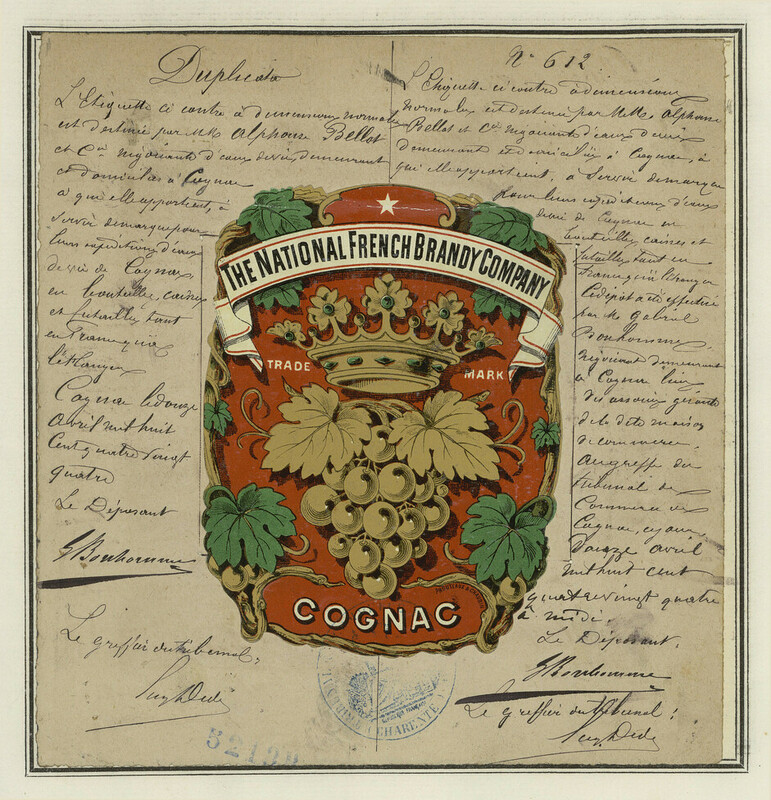 Duplicata
L'Etiquette ci contre à dimensions normales
est destinée par MM. Alphonse Bellot
et Cie négociants d'eaux de vie, demeurant
et domiciliés à Cognac
à qui elle appartient, à
servir de marque pour
leurs expéditions d'eaux
de vie de Cognac
en bouteilles, caisses
et futailles tant
en France qu'à
l'étranger
Cognac le douze
avril mil huit
cent quatre vingt
quatre
Le Déposant
G Bonhomme
Le greffier du tribunal,
N° 612
L'Etiquette ci contre à dimensions
normales est destinée par MM. Alphonse
Bellot et Cie négociants d'eaux de vie
demeurant et domiciliés à Cognac, à
qui elle appartient, à servir de marque
pour leurs expéditions d'eaux
de vie de Cognac en
bouteilles, caisses et
futailles tant en
France qu'à l'étranger
le dépôt a été effectué
par M. Gabriel
Bonhomme,
négociant demeurant
à Cognac l'un
des associés gérants
de la dite maison
de commerce.
au greffe du
tribunal de
Commerce de
Cognac, ce jour
douze avril
mil huit cent
quatre vingt quatre
à midi.
Le Déposant.
G Bonhomme
Le greffier du tribunal,
THE NATIONAL FRENCH BRANDY COMPANY
TRADE MARK
COGNAC
CHARENTE
52139